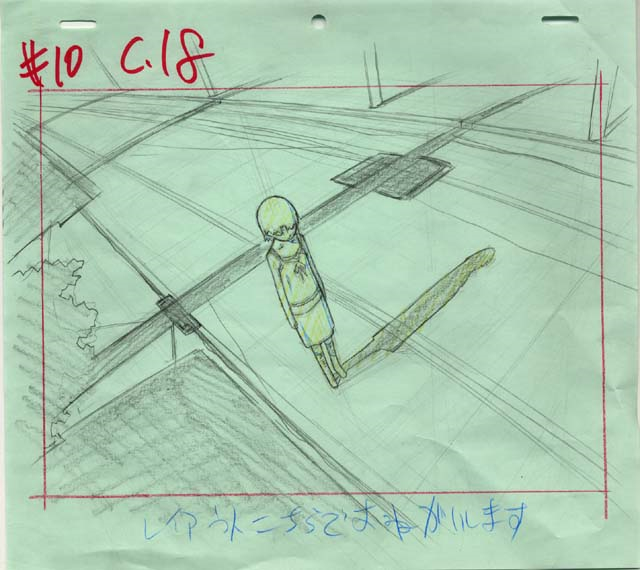 #10 C.18
レイアウトこちらでおねがいします